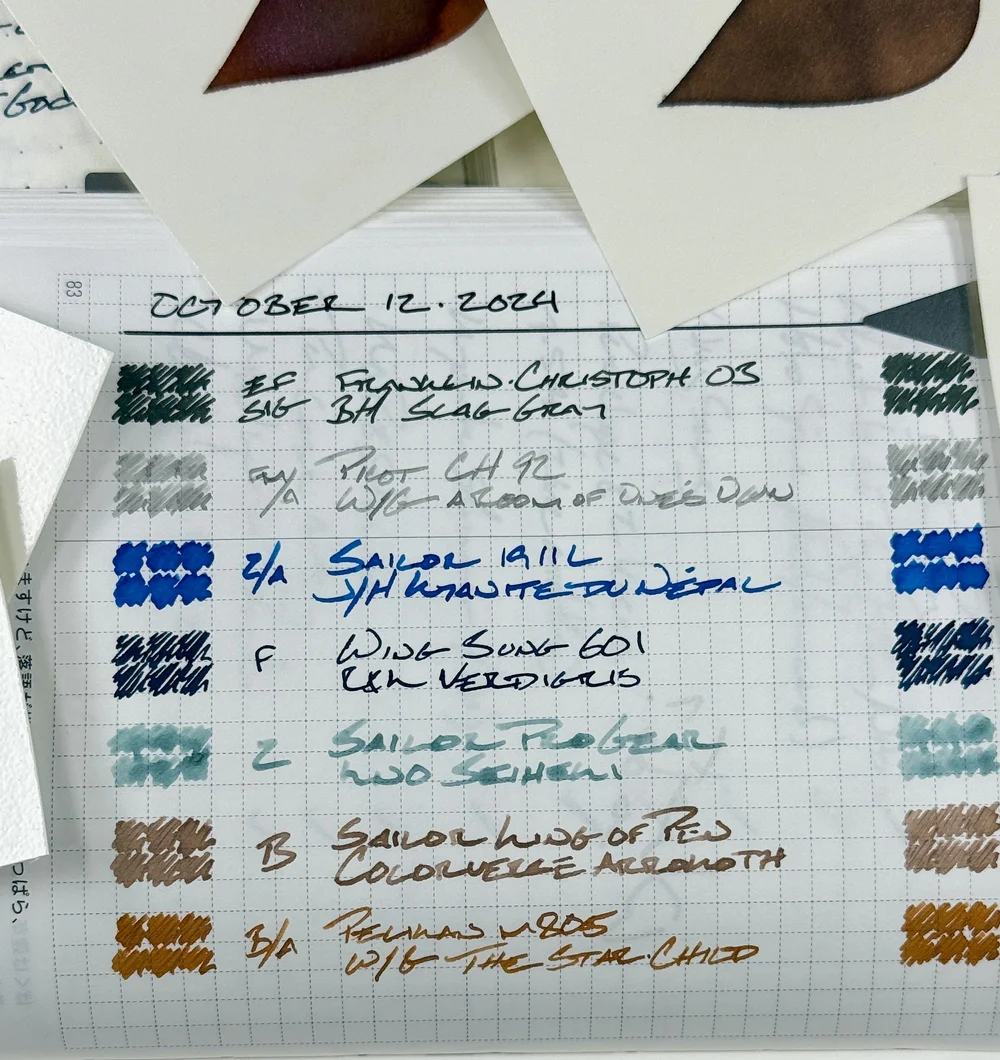 God
83
OCTOBER 12.2024
EF FRANKLIN-CHRISTOPH 03
SIG BH SLAG GRAY
PILOT CH 92
/A W/G A ROOM OF ONE'S OWN
Z/A SAILOR 1911L
J/H KYANITE DU NÉPAL
F WING SUNG 601
R&K VERDIGRIS
Z SAILOR PRO GEAR
SEIHEKI
B SAILOR KING OF PEN
COLORVERSE ARROKOTH
B/A PELIKAN M805
W/G THE STAR-CHILD
ますけど、落語
つばら、